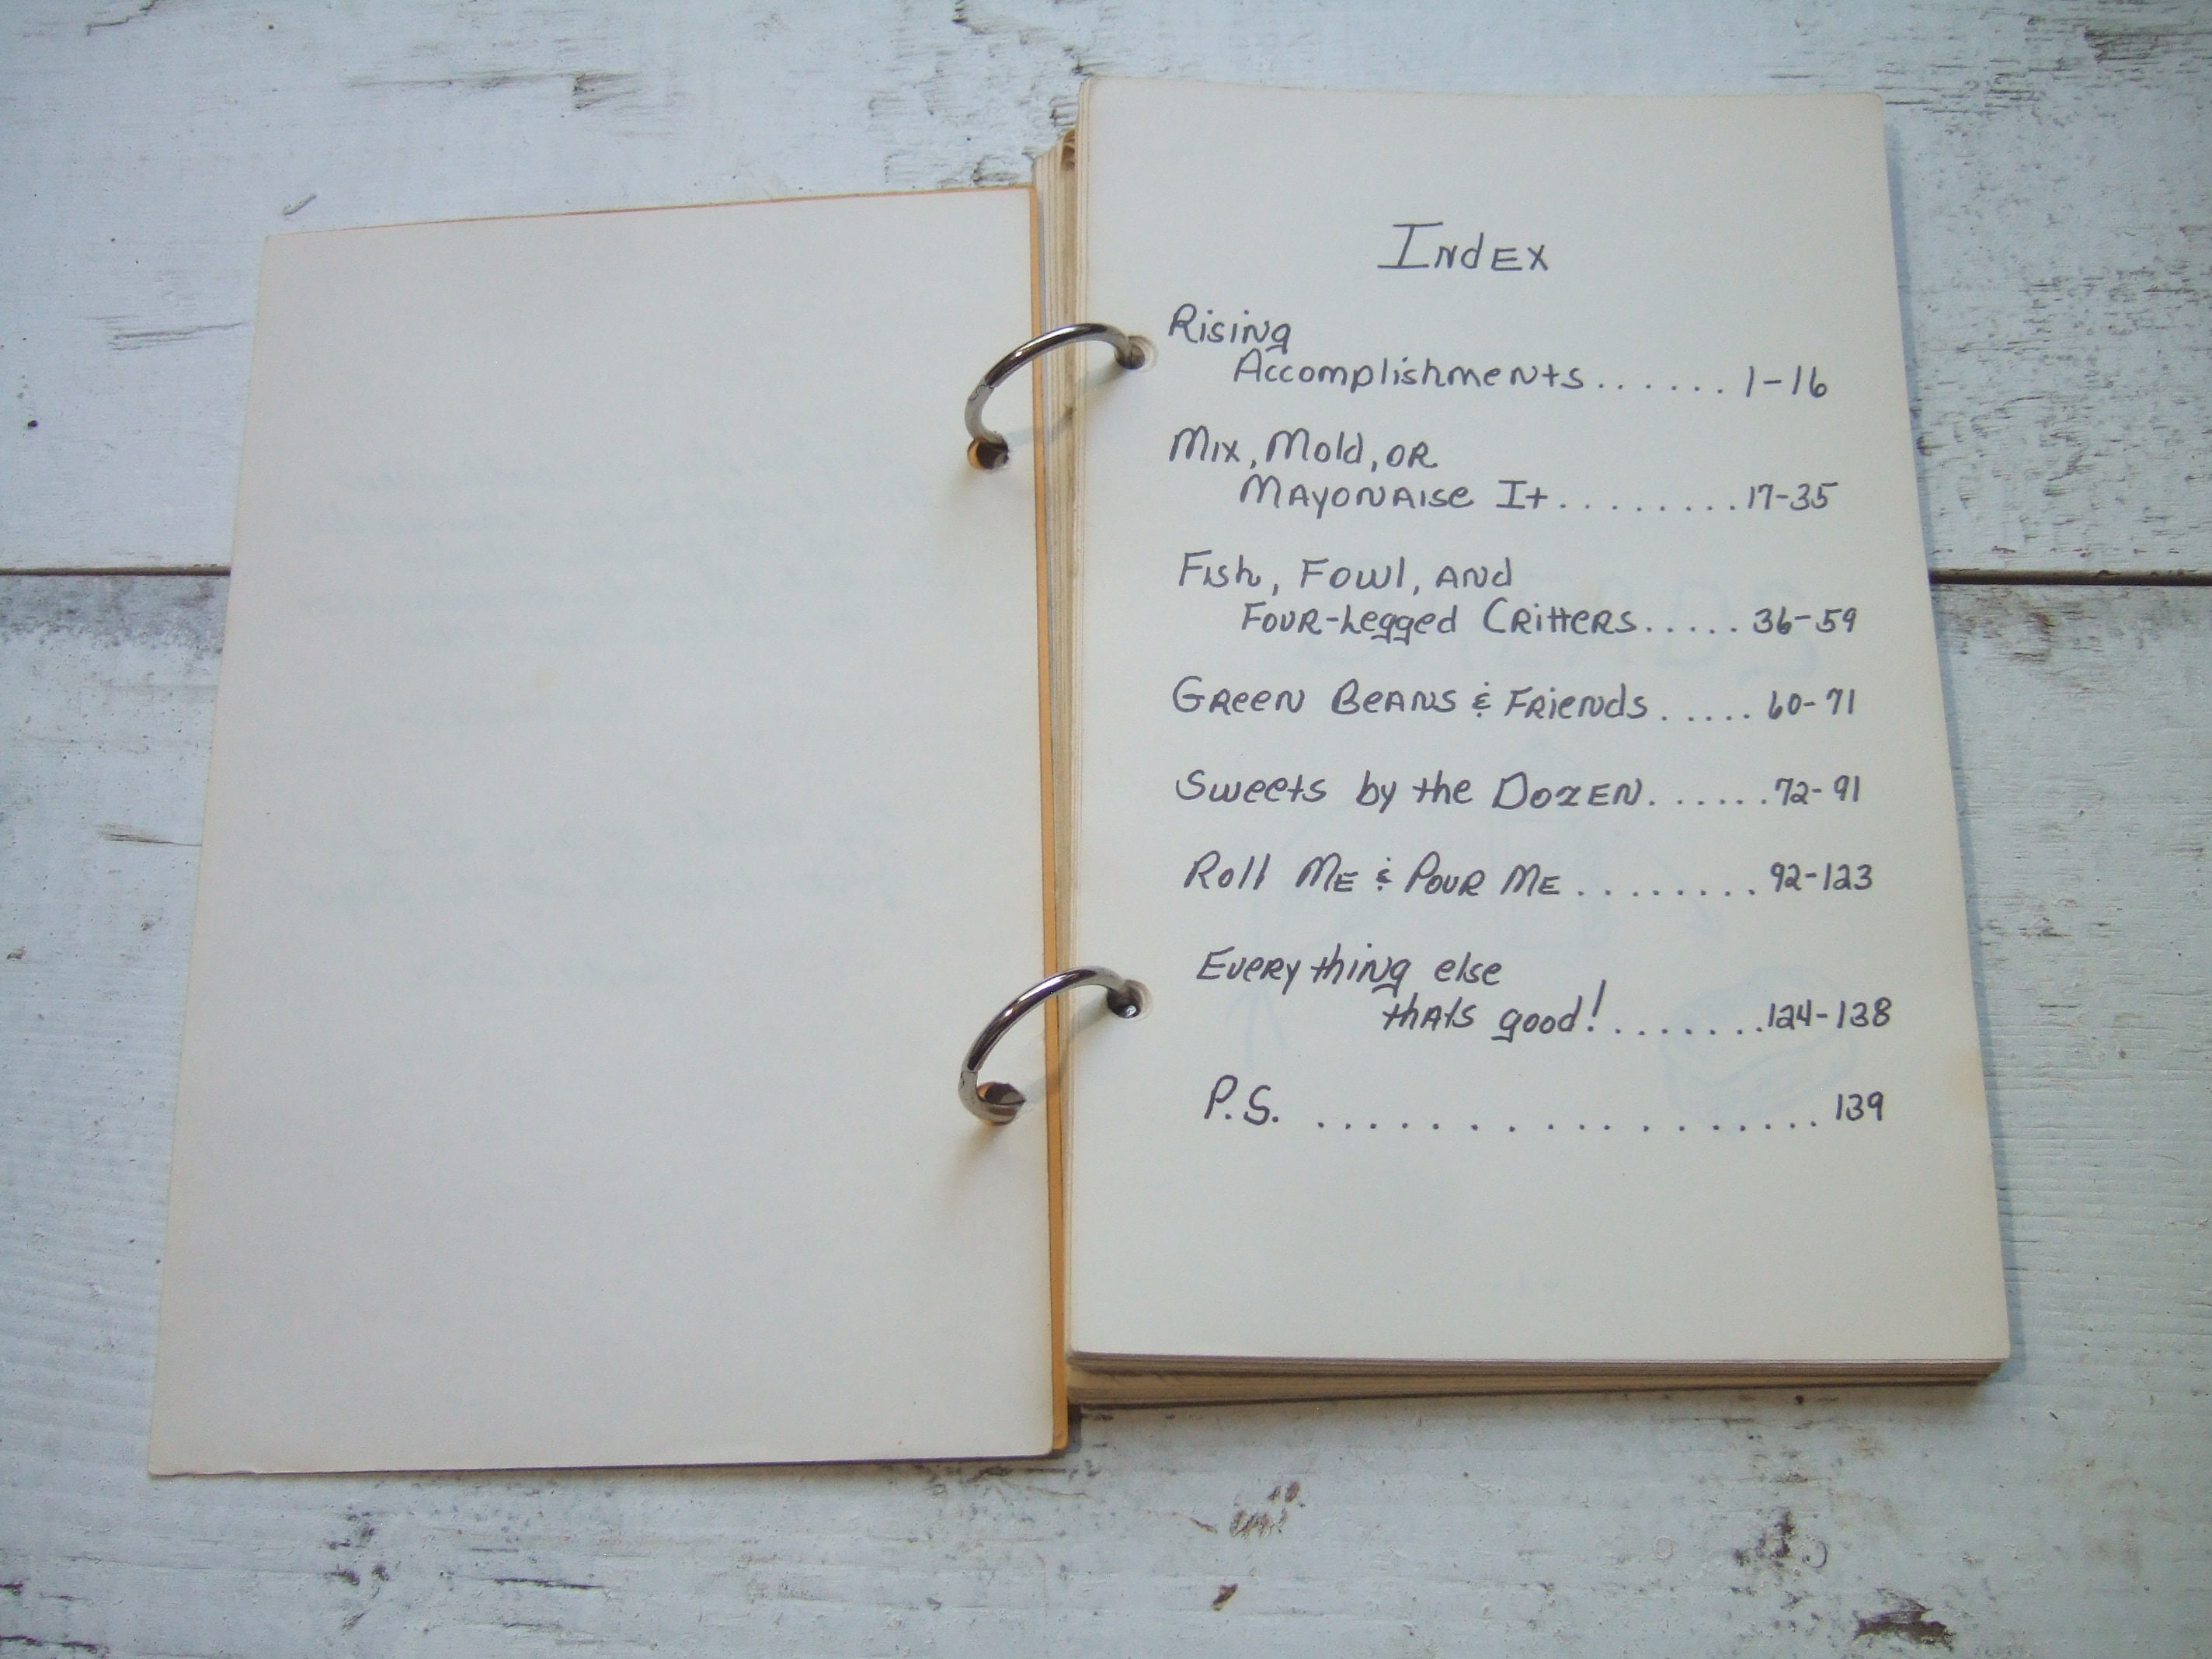 Index
Rising
Accomplishments...... 1-16
Mix, Mold, or
Mayonaise It.........17-35
Fish, Fowl, and
Four-Legged Critters..... 36-59
Green Beans & Friends..... 60-71
Sweets by the Dozen.......72-91
Roll Me & Pour Me........ 92-123
Everything else
thats good!.......124-138
P.S. ................... 139